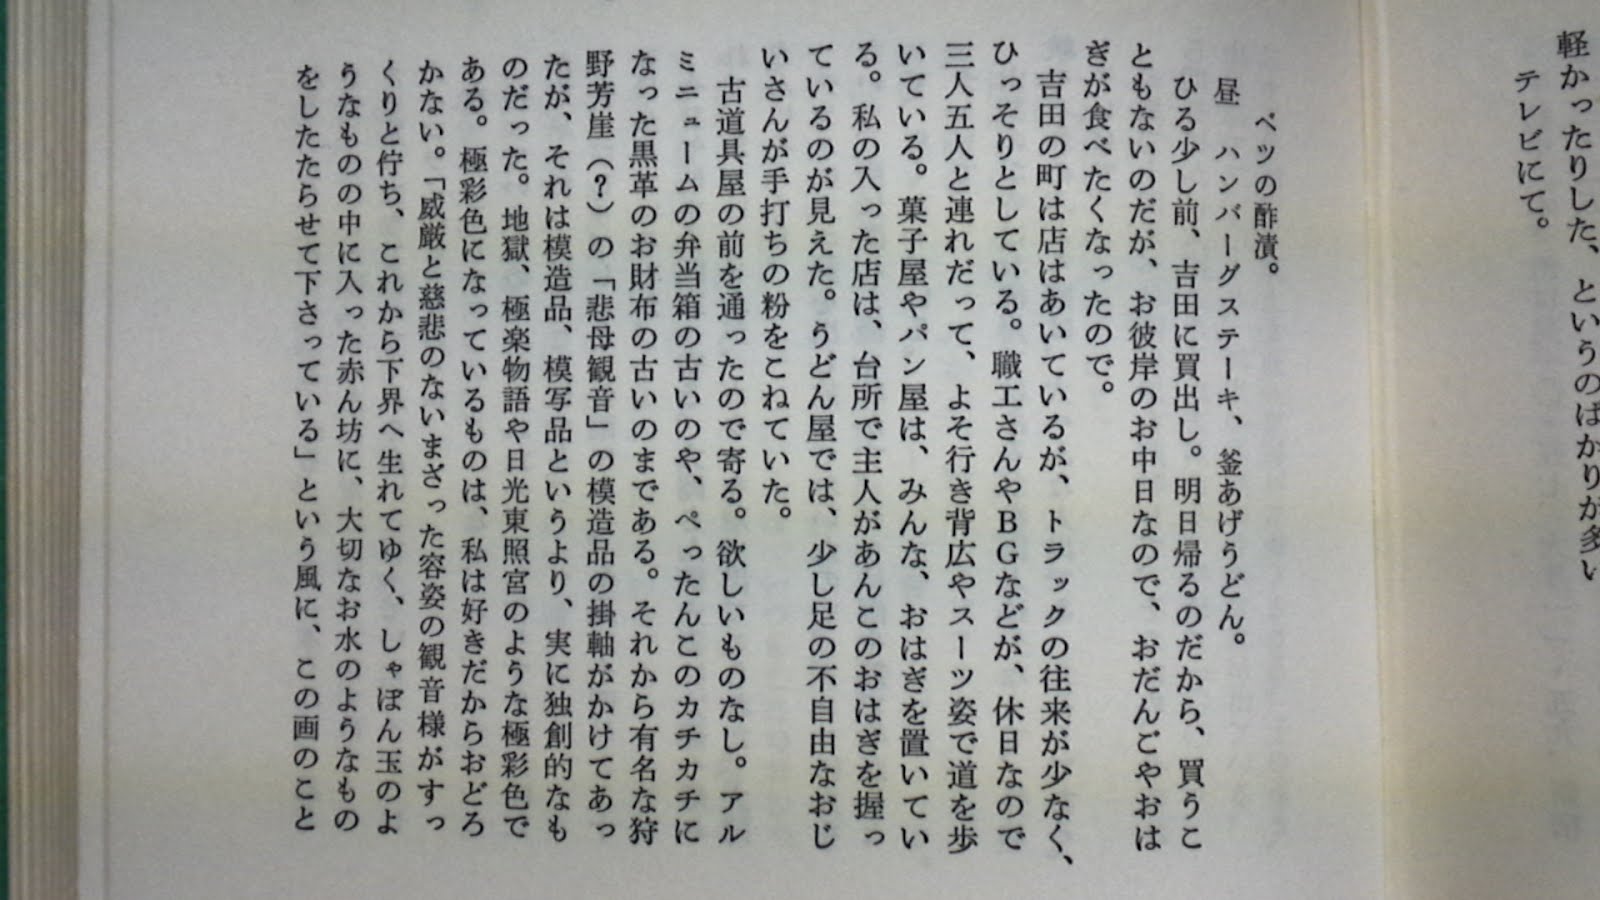 軽かったりした、というのばかりが多い
テレビにて。
ベツの酢漬。
昼　ハンバーグステーキ、釜あげうどん。
ひる少し前、吉田に買出し。明日帰るのだから、買うこ
ともないのだが、お彼岸のお中日なので、おだんごやおは
ぎが食べたくなったので。
吉田の町は店はあいているが、トラックの往来が少なく、
ひっそりとしている。職工さんやＢＧなどが、休日なので
三人五人と連れだって、よそ行き背広やスーツ姿で道を歩
いている。菓子屋やパン屋は、みんな、おはぎを置いてい
る。私の入った店は、台所で主人があんこのおはぎを握っ
ているのが見えた。うどん屋では、少し足の不自由なおじ
いさんが手打ちの粉をこねていた。
古道具屋の前を通ったので寄る。欲しいものなし。アル
ミニュームの弁当箱の古いのや、ぺったんこのカチカチに
なった黒革のお財布の古いのまである。それから有名な狩
野芳崖（？）の「悲母観音」の模造品の掛軸がかけてあっ
たが、それは模造品、模写品というより、実に独創的なも
のだった。地獄、極楽物語や日光東照宮のような極彩色で
ある。極彩色になっているものは、私は好きだからおどろ
かない。「威厳と慈悲のないまざった容姿の観音様がすっ
くりと佇ち、これから下界へ生れてゆく、しゃぼん玉のよ
うなものの中に入った赤ん坊に、大切なお水のようなもの
をしたたらせて下さっている」という風に、この画のこと